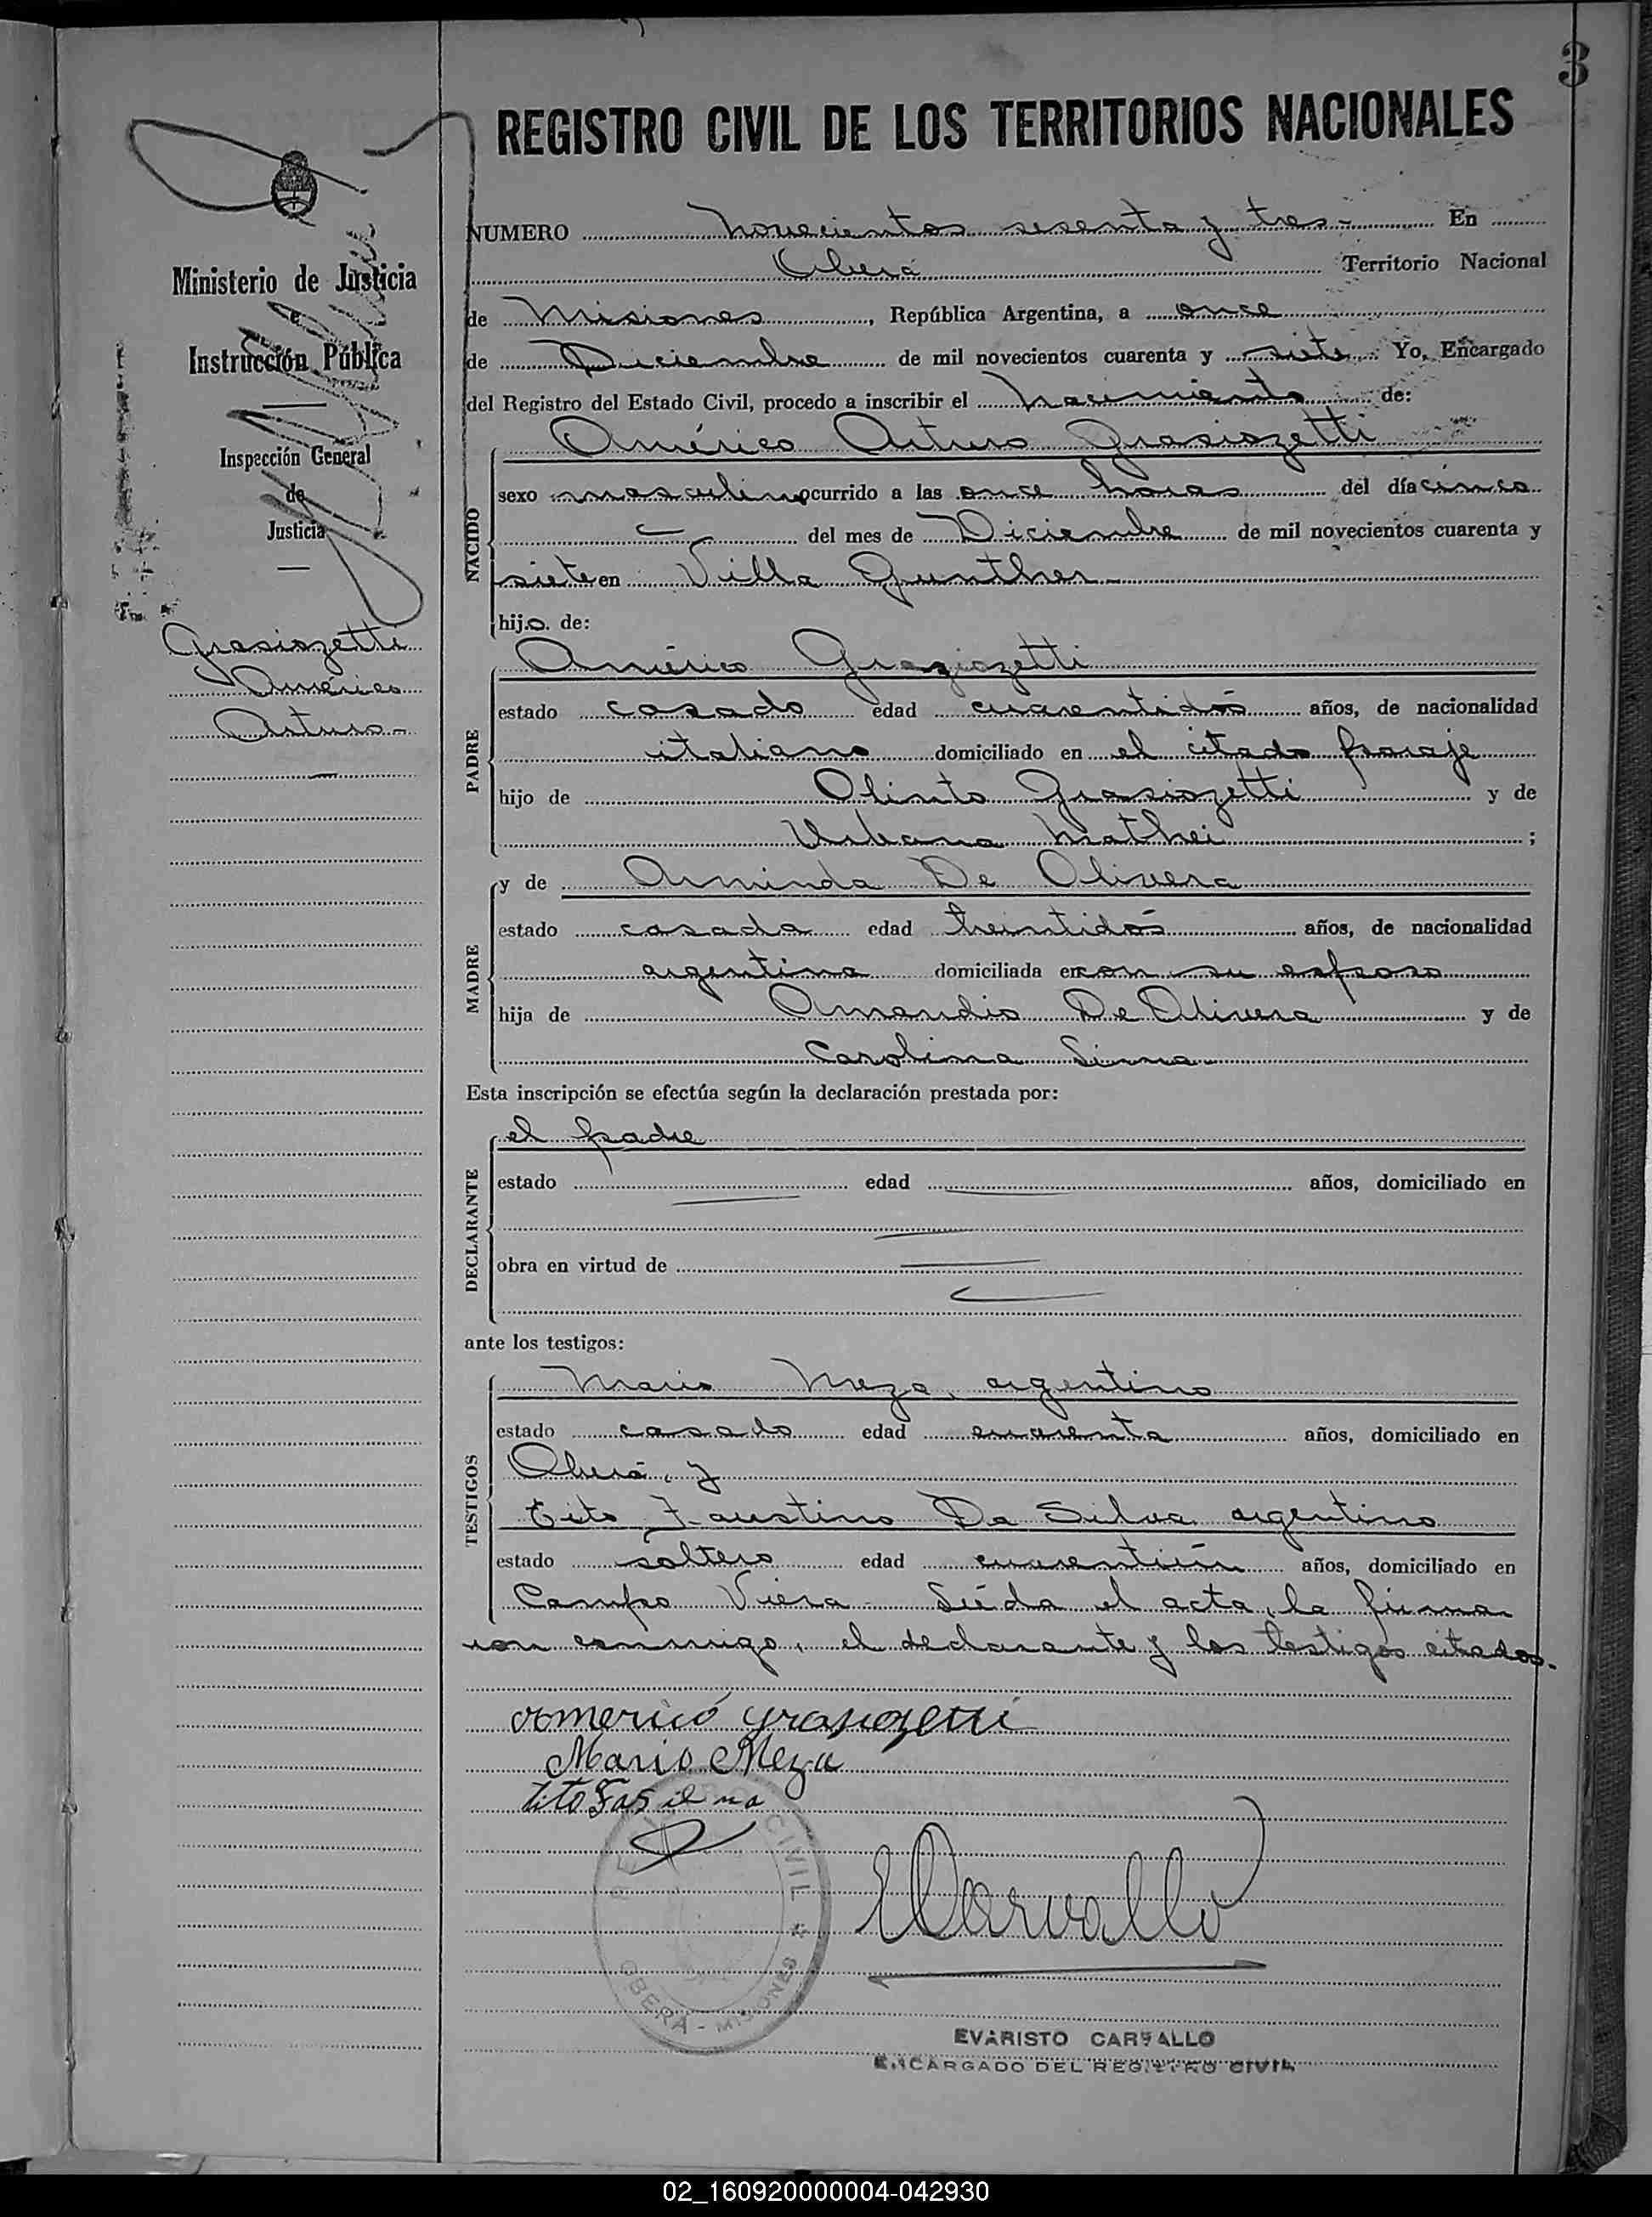 3
REGISTRO CIVIL DE LOS TERRITORIOS NACIONALES
Ministerio de Justicia
e
Instrucción Pública
Inspección General
de
Justicia
Grasiozetti
Américo
Arturo-
NUMERO novecientos sesenta y tres- En
Oberá Territorio Nacional
de Misiones, República Argentina, a once
de Diciembre de mil novecientos cuarenta y siete. Yo, Encargado
del Registro del Estado Civil, procedo a inscribir el nacimiento de:
NACIDO
Américo Arturo Grasiozetti
sexo masculino ocurrido a las once horas del día cinco
del mes de Diciembre de mil novecientos cuarenta y
siete en Villa Gunther-
hijo de:
PADRE
Américo Graziozetti
estado casado edad cuarentidós años, de nacionalidad
italiano domiciliado en el citado paraje
hijo de Olinto Grasiozetti y de
Urbana Mathei ;
MADRE
y de Arminda De Olivera
estado casada edad treintidós años, de nacionalidad
argentina domiciliada en con su esposo
hija de Amandio De Olivera y de
Carolina
Esta inscripción se efectúa según la declaración prestada por:
DECLARANTE
el padre
estado edad años, domiciliado en
obra en virtud de
ante los testigos:
TESTIGOS
Mario Meza, argentino
estado casado edad cuarenta años, domiciliado en
Oberá, y
Tito Faustino Da Silva argentino
estado soltero edad cuarentiún años, domiciliado en
Campo Viera- Leída el acta, la firma
ron conmigo, el declarante y los testigos citados.-
Americo Grasiozetti
Mario Meza
Tito
REGISTRO CIVIL
OBERÁ - MISIONES
ECarvallo
EVARISTO CARVALLO
ENCARGADO DEL REGISTRO CIVIL
02_160920000004-042930